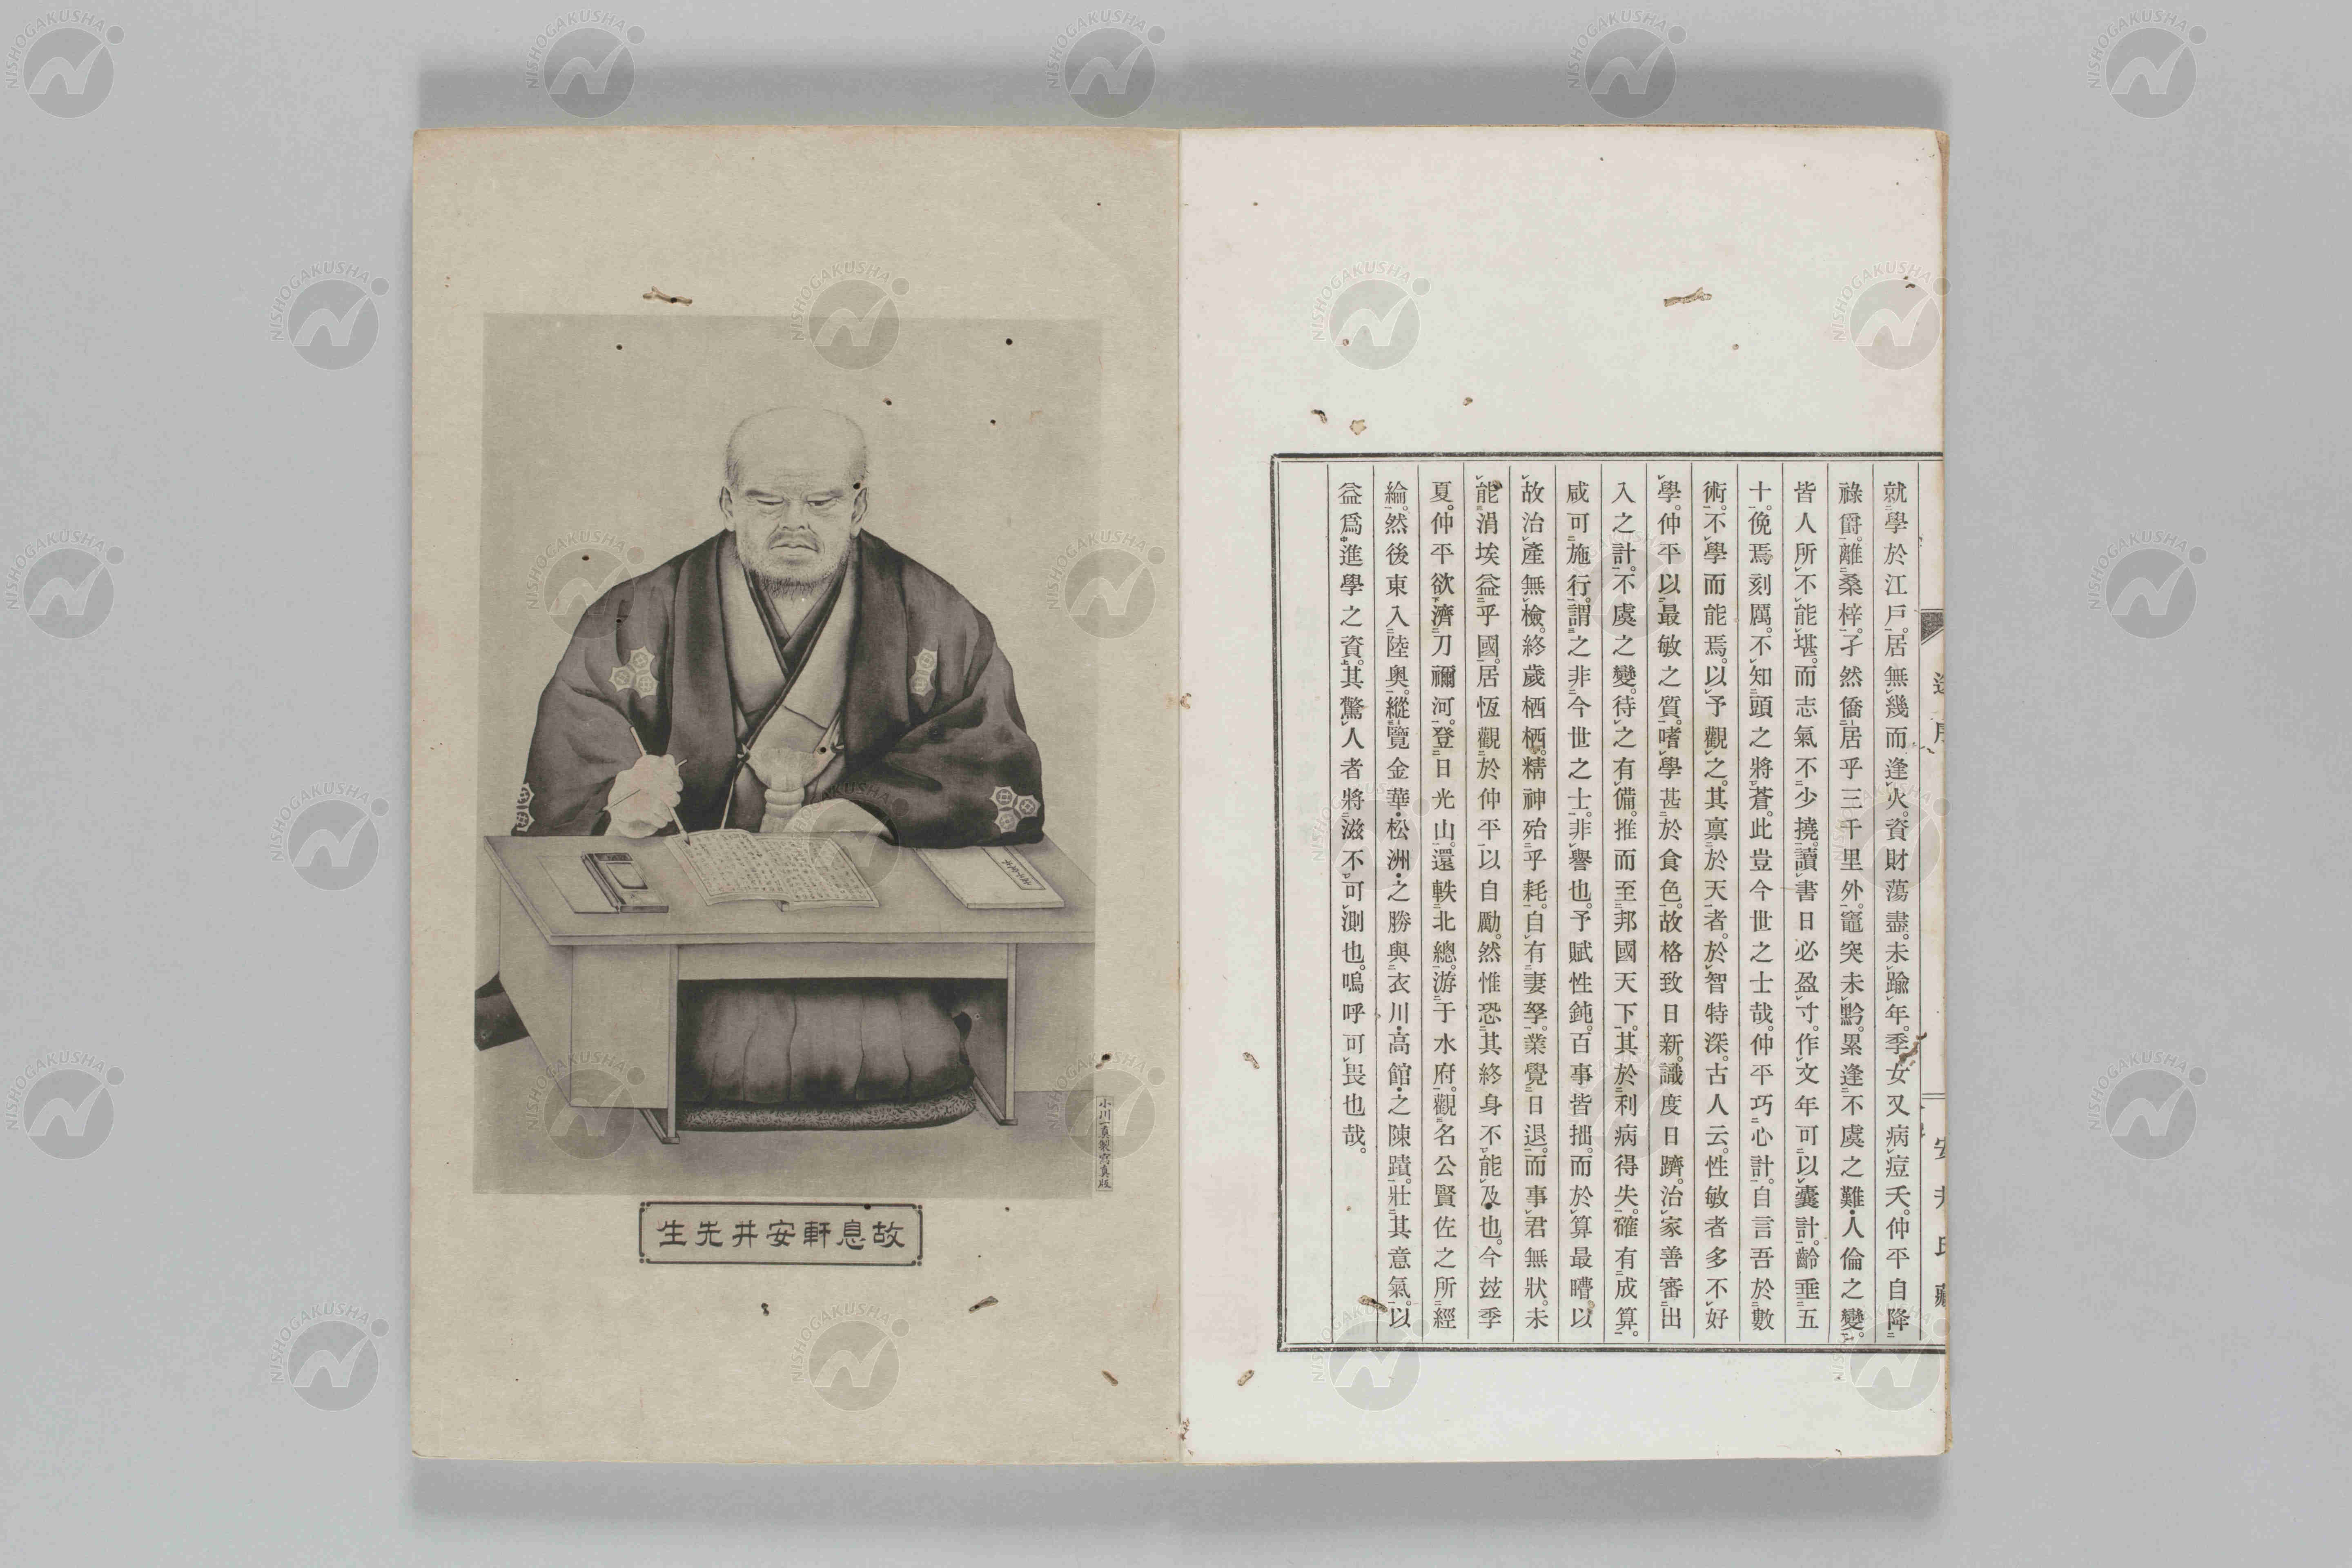 就學於江戶。居無幾而逢火。資財蕩盡。未踰年。季女又病痘夭。仲平自降
祿爵。離桑梓。孑然僑居乎三千里外。竈突未黔。累逢不虞之難・人倫之變。
皆人所不能堪。而志氣不少撓。讀書日必盈寸。作文年可以囊計。齡垂五
十。俛焉刻厲。不知頭之將蒼。此豈今世之士哉。仲平巧心計。自言吾於數
術。不學而能焉。以予觀之。其稟於天者。於智特深。古人云。性敏者多不好
學。仲平以最敏之質。嗜學甚於食色。故格致日新。識度日躋。治家善審出
入之計。不虞之變。待之有備。推而至邦國天下。其於利病得失。確有成算。
咸可施行。謂之非今世之士。非譽也。予賦性鈍。百事皆拙。而於算最嘈以
故治產無檢。終歲栖栖。精神殆乎耗。自有妻孥。業覺日退。而事君無狀。未
能涓埃益乎國。居恆觀於仲平。以自勵。然惟恐其終身不能及也。今玆季
夏。仲平欲濟刀禰河。登日光山。還軼北總。游于水府。觀名公賢佐之所經
綸。然後東入陸奧。縱覽金華・松洲・之勝與衣川・高館・之陳蹟。壯其意氣。以
益爲進學之資。其驚人者將滋不可測也。嗚呼可畏也哉。
小川一眞製寫眞版
故息軒安井先生
NISHOGAKUSHA